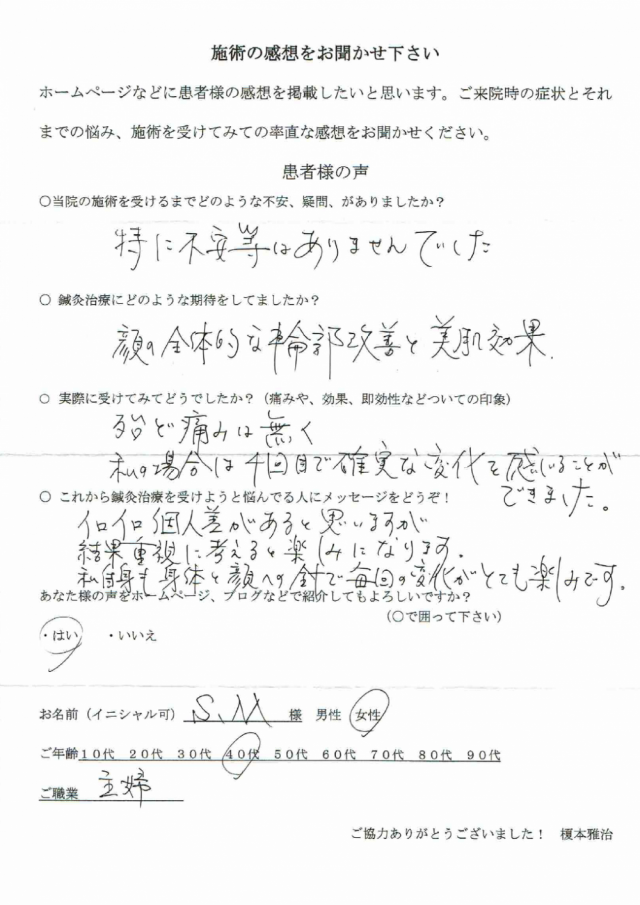 施術の感想をお聞かせ下さい
ホームページなどに患者様の感想を掲載したいと思います。ご来院時の症状とそれ
までの悩み、施術を受けてみての率直な感想をお聞かせください。
患者様の声
○当院の施術を受けるまでどのような不安、疑問、がありましたか？
特に不安等はありませんでした
○ 鍼灸治療にどのような期待をしてましたか？
顔の全体的な輪郭改善と美肌効果.
○ 実際に受けてみてどうでしたか？（痛みや、効果、即効性などついての印象）
殆ど痛みは無く
私の場合は4回目で確実な変化を感じることが
できました。
○ これから鍼灸治療を受けようと悩んでる人にメッセージをどうぞ！
イロイロ個人差があると思いますが
結果重視に考えると楽しみになります。
私自身も身体と顔への針で毎回の変化がとても楽しみです。
あなた様の声をホームページ、ブログなどで紹介してもよろしいですか？
（○で囲って下さい）
・はい ・いいえ
お名前（イニシャル可） S.M 様 男性 女性
ご年齢 １０代 ２０代 ３０代 ４０代 ５０代 ６０代 ７０代 ８０代 ９０代
ご職業 主婦
ご協力ありがとうございました！ 榎本雅治